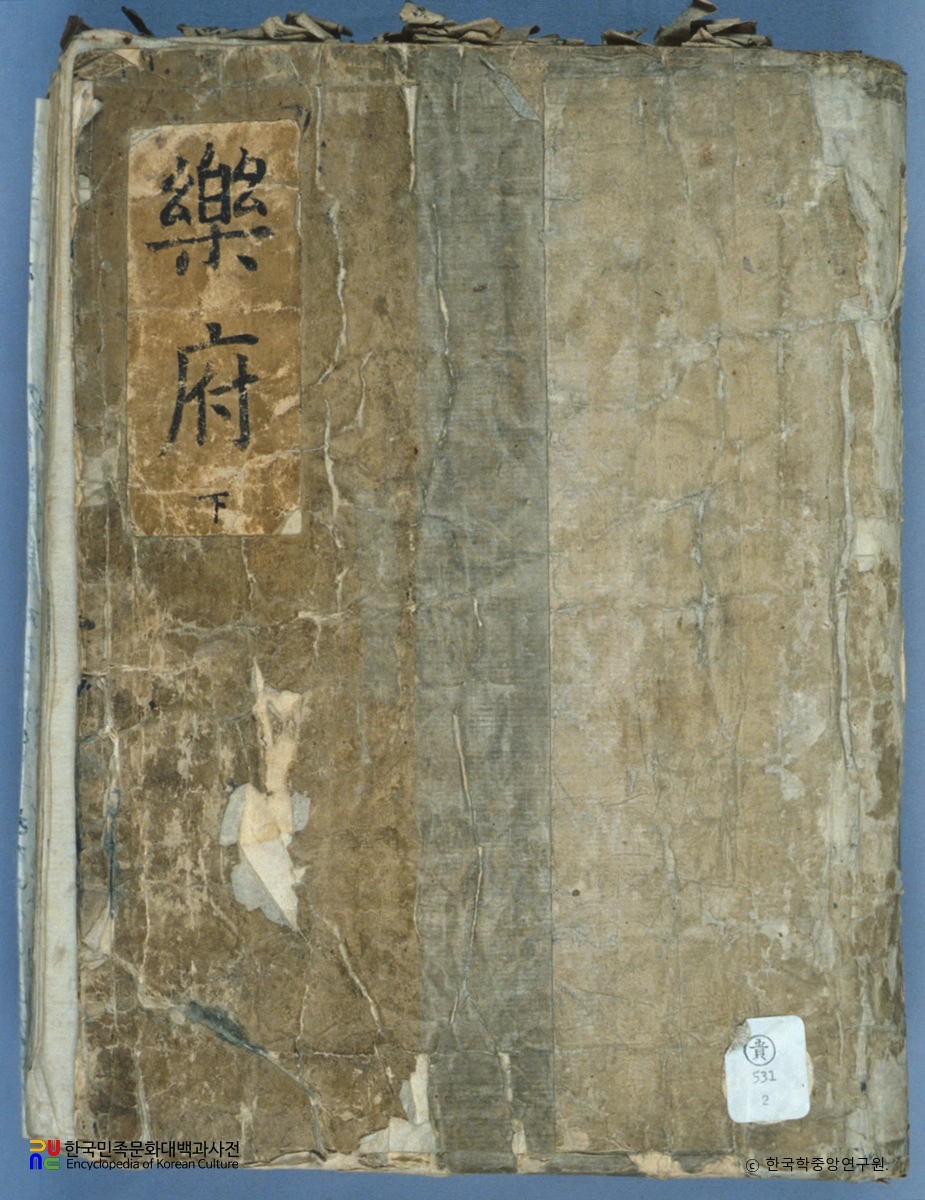 樂
府
下
貴
531
2
한국민족문화대백과사전
Encyclopedia of Korean Culture
© 한국학중앙연구원.